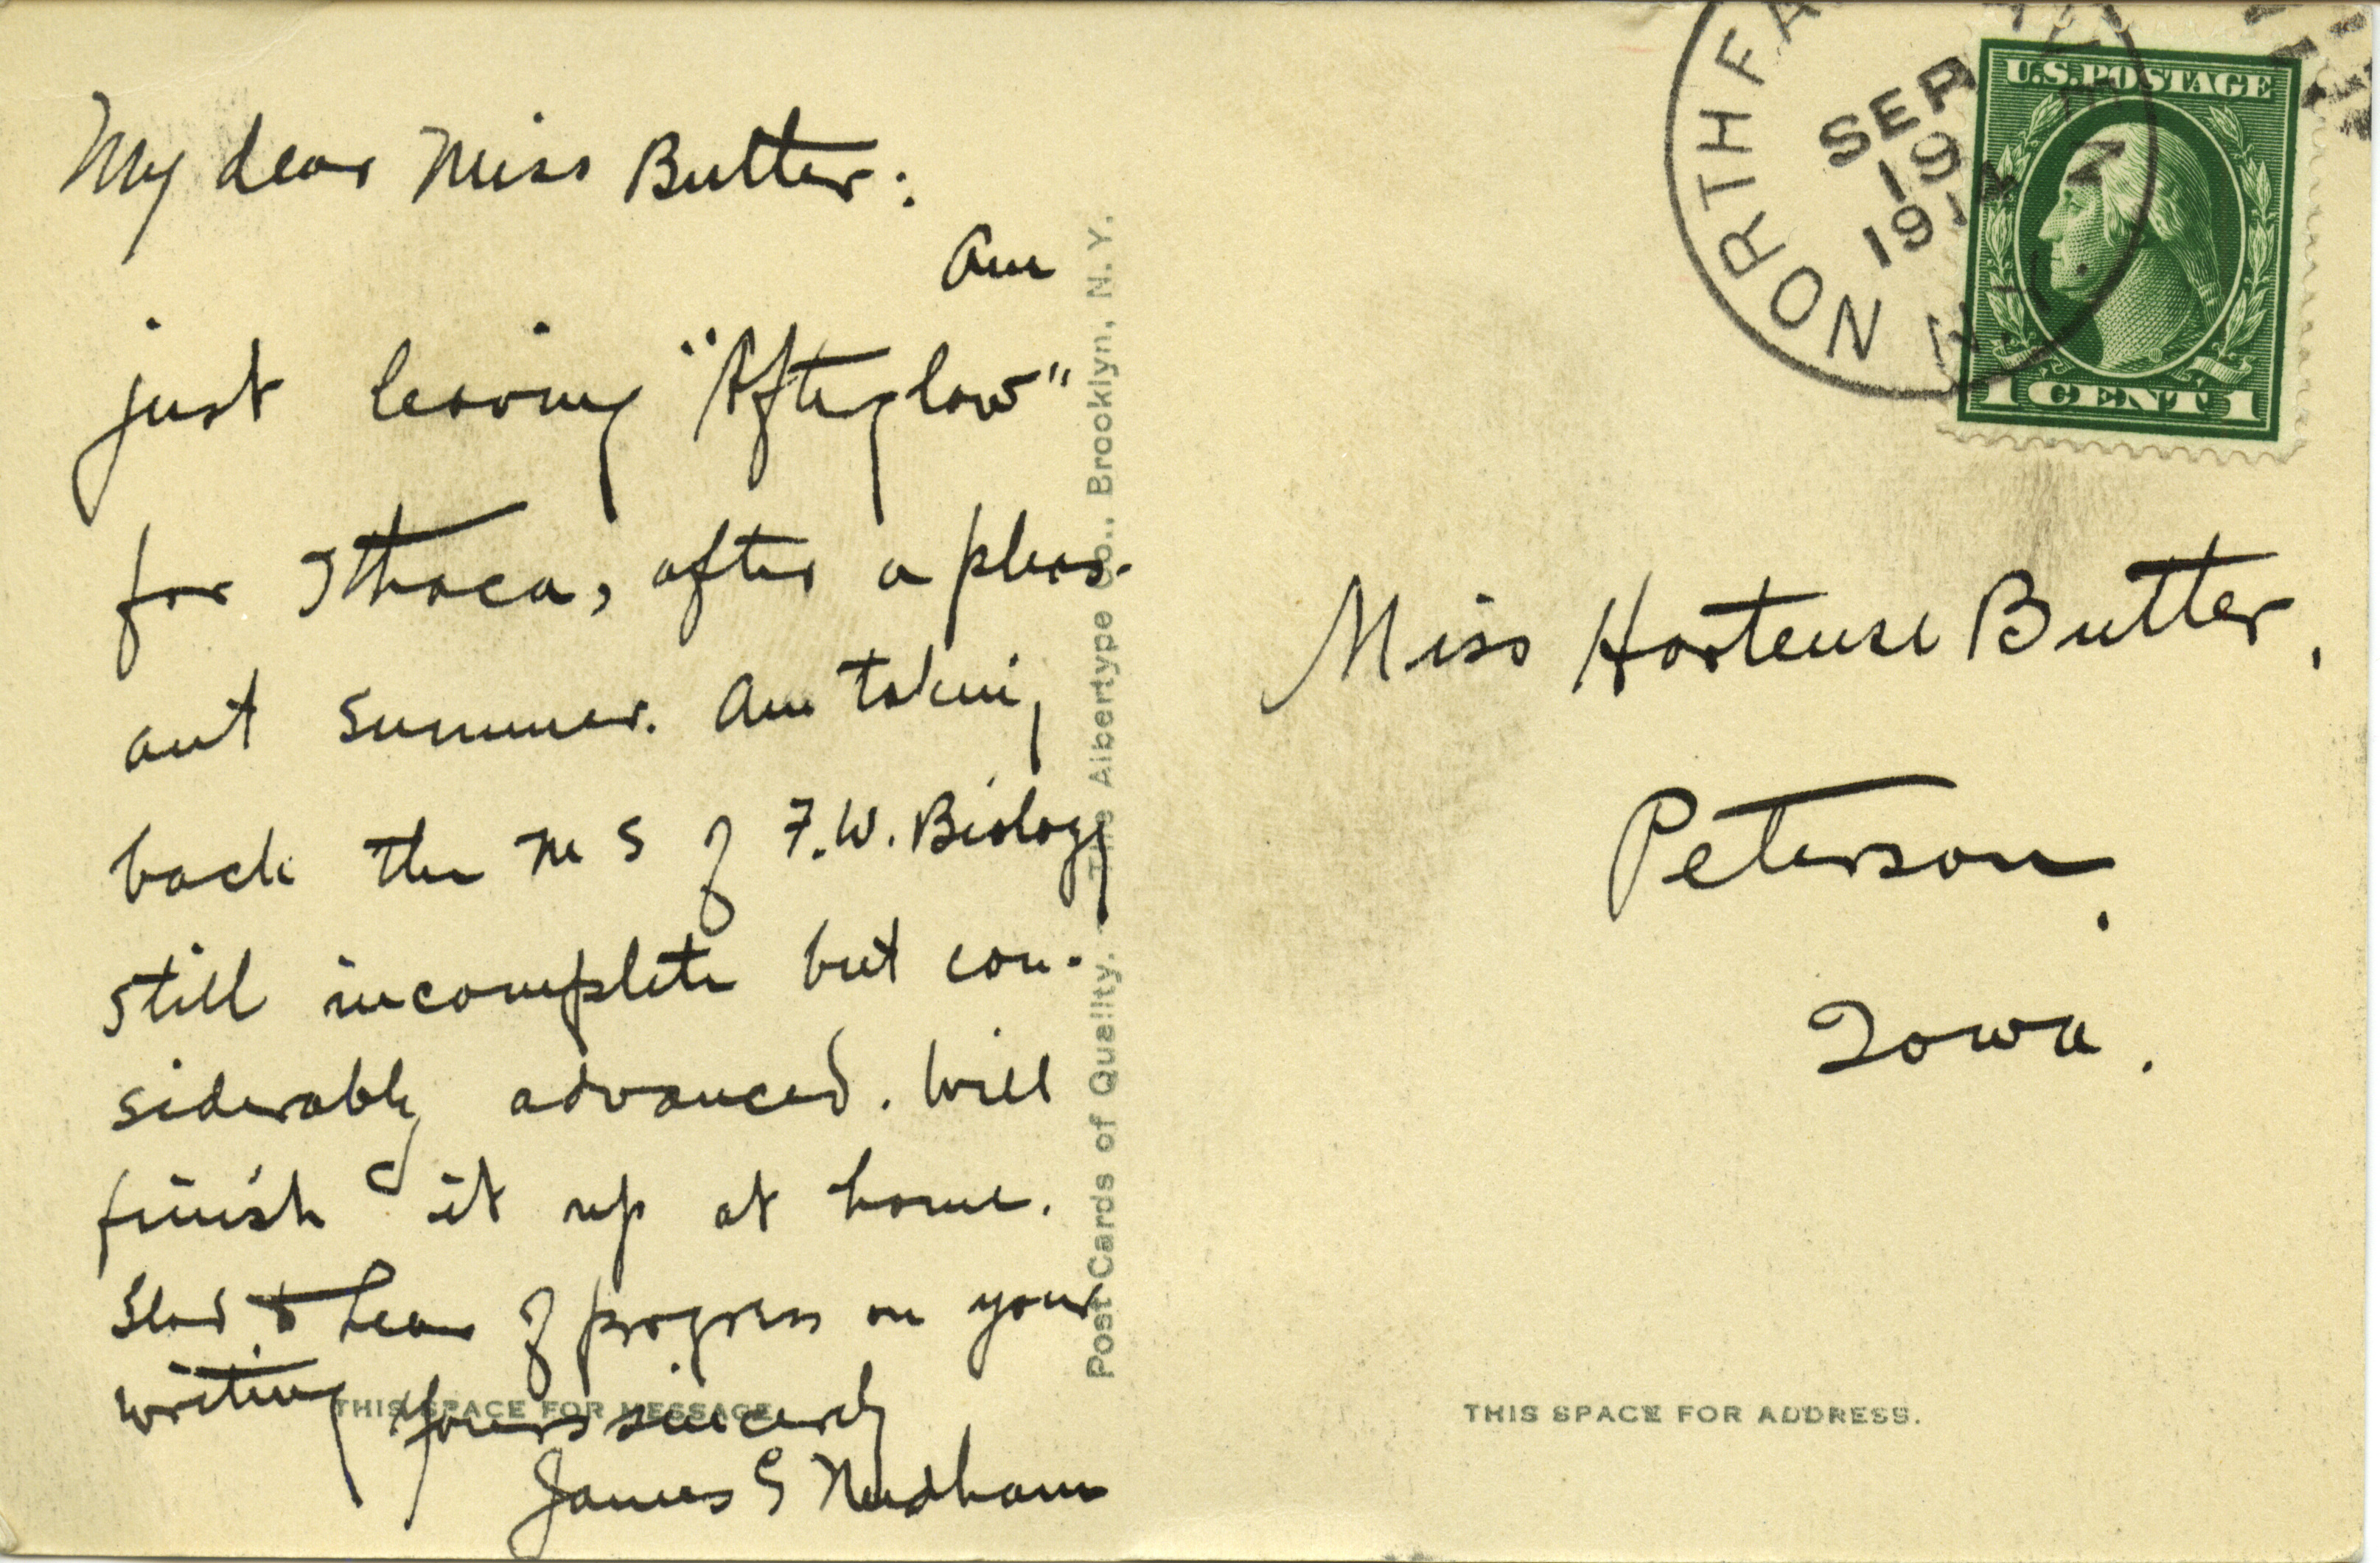 My dear Miss Butter:
Am
just leaving "Afterglow"
for Ithaca, after a pleas-
ant summer. Am taking
back the MS of F.W. Biology
still incomplete but con-
siderably advanced. Will
finish it up at home.
Glad to hear of progress on your
writing Yours sincerely
James G Needham
THIS SPACE FOR MESSAGE
Post Cards of Quality. — The Albertype Co., Brooklyn, N. Y.
SEP
19
U.S. POSTAGE
1 CENT 1
Miss Hortense Butter,
Peterson.
Iowa.
THIS SPACE FOR ADDRESS.